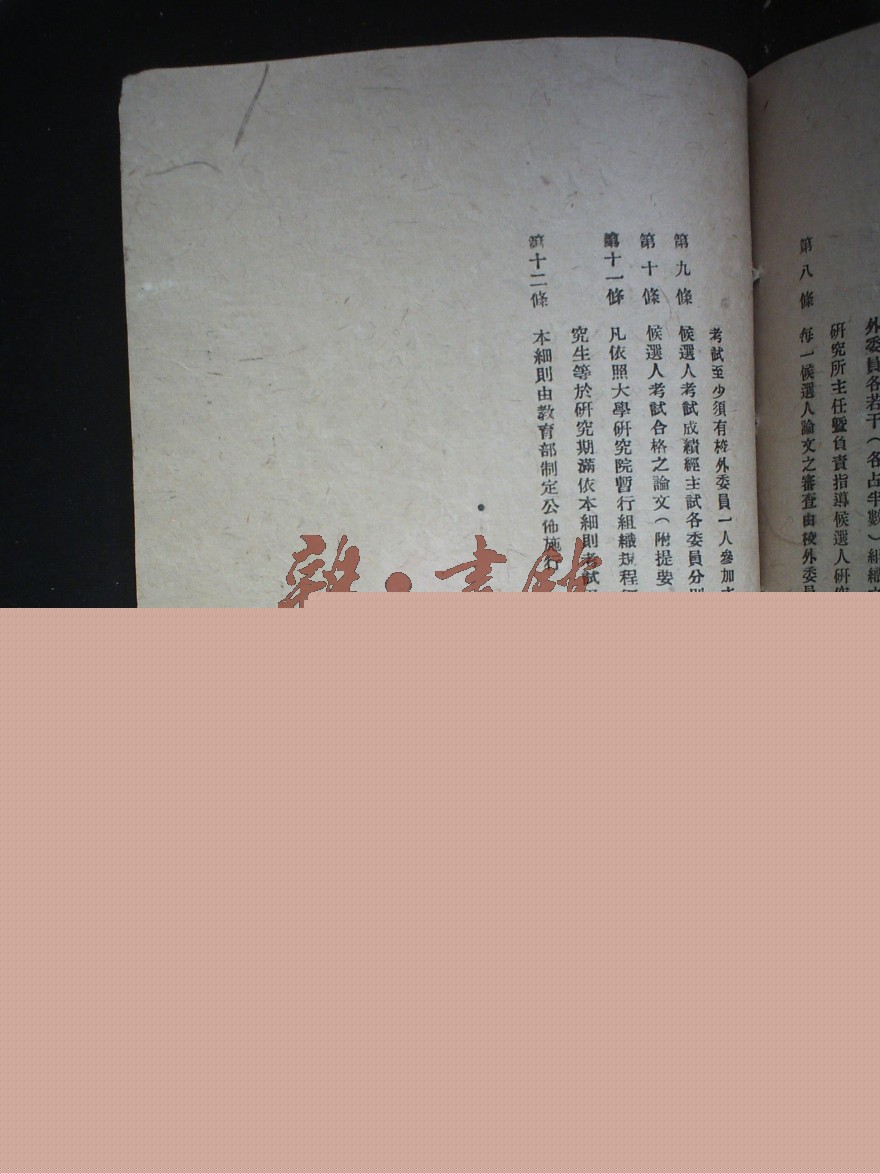 外委員各若干（各占半數）組織
研究所主任暨負責指導候選人研究
第八條 每一候選人論文之審查由校外委員
考試至少須有校外委員一人參加
第九條 候選人考試成績經主試各委員分別
第十條 候選人考試合格之論文（附提要
第十一條 凡依照大學研究院暫行組織規程
究生等於研究期滿依本細則考試
第十二條 本細則由教育部制定公佈施行